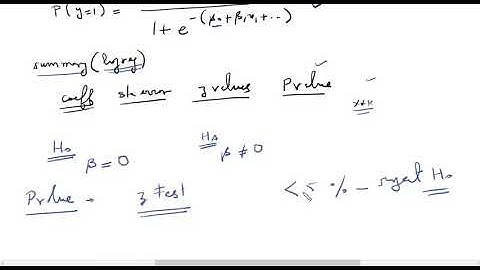 P(y=1) = 1 + e^-(β₀+β₁x₁+...) ✓
summary(logreg)
coeff std error z values P value ✓
H₀ β = 0 H₀ β ≠ 0
P value - z test < 5 % - reject H₀